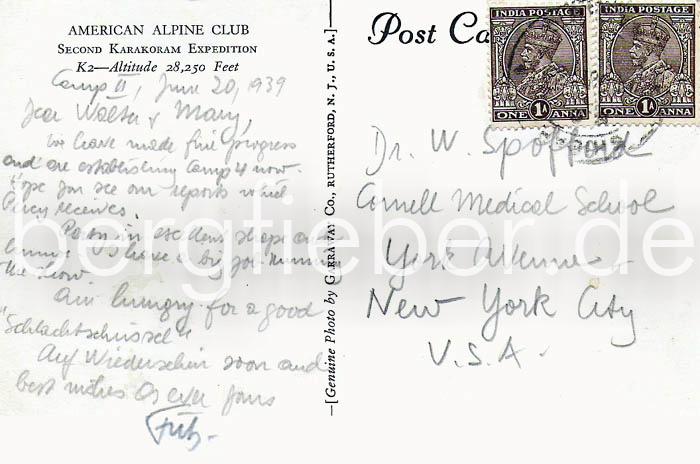 AMERICAN ALPINE CLUB
SECOND KARAKORAM EXPEDITION
K2—Altitude 28,250 Feet
Camp II, June 20, 1939
Dear Walter & Mary,
We have made fine progress
and are establishing Camp 4 now.
Hope you see our reports which
Percy receives.
in excellent shape and
I have a big job running
the show
Am hungry for a good
"Schlachtschüssel"
Auf Wiedersehen soon and
best wishes As ever yours
Fritz-
—[Genuine Photo by GARRAWAY CO., RUTHERFORD, N. J., U. S. A.]—
Post
INDIA POSTAGE
1A
ONE ANNA
INDIA POSTAGE
1A
ONE ANNA
Dr. W. Spofford
Cornell Medical School
York Avenue
New York City
U.S.A.
bergfieber.de